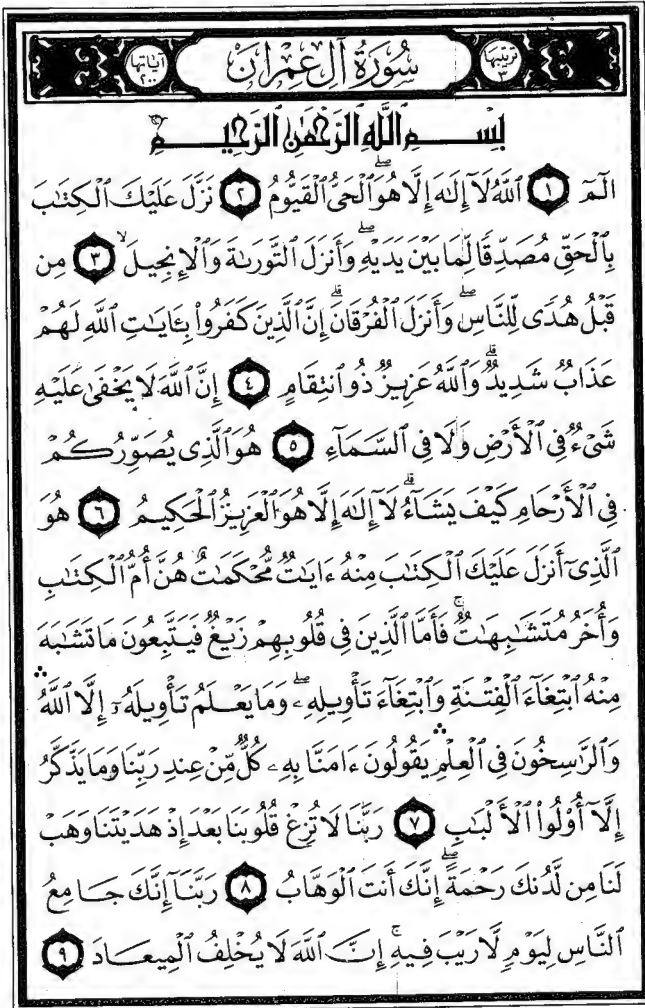 ترتيبها ٣ سُورَةُ آلِ عِمْرَانَ آيَاتها ٢٠٠
بِسْمِ ٱللَّهِ ٱلرَّحْمَٰنِ ٱلرَّحِيمِ
الٓمٓ ١ ٱللَّهُ لَآ إِلَٰهَ إِلَّا هُوَ ۖ ٱلْحَىُّ ٱلْقَيُّومُ ٢ نَزَّلَ عَلَيْكَ ٱلْكِتَٰبَ
بِٱلْحَقِّ مُصَدِّقًا لِّمَا بَيْنَ يَدَيْهِ ۖ وَأَنزَلَ ٱلتَّوْرَىٰةَ وَٱلْإِنجِيلَ ۙ ٣ مِن
قَبْلُ هُدًى لِّلنَّاسِ ۖ وَأَنزَلَ ٱلْفُرْقَانَ ۗ إِنَّ ٱلَّذِينَ كَفَرُوا۟ بِـَٔايَٰتِ ٱللَّهِ لَهُمْ
عَذَابٌ شَدِيدٌ ۗ وَٱللَّهُ عَزِيزٌ ذُو ٱنتِقَامٍ ٤ إِنَّ ٱللَّهَ لَا يَخْفَىٰ عَلَيْهِ
شَىْءٌ فِى ٱلْأَرْضِ وَلَا فِى ٱلسَّمَآءِ ٥ هُوَ ٱلَّذِى يُصَوِّرُكُمْ
فِى ٱلْأَرْحَامِ كَيْفَ يَشَآءُ ۗ لَآ إِلَٰهَ إِلَّا هُوَ ٱلْعَزِيزُ ٱلْحَكِيمُ ٦ هُوَ
ٱلَّذِىٓ أَنزَلَ عَلَيْكَ ٱلْكِتَٰبَ مِنْهُ ءَايَٰتٌ مُّحْكَمَٰتٌ هُنَّ أُمُّ ٱلْكِتَٰبِ
وَأُخَرُ مُتَشَٰبِهَٰتٌ ۚ فَأَمَّا ٱلَّذِينَ فِى قُلُوبِهِمْ زَيْغٌ فَيَتَّبِعُونَ مَا تَشَٰبَهَ
مِنْهُ ٱبْتِغَآءَ ٱلْفِتْنَةِ وَٱبْتِغَآءَ تَأْوِيلِهِۦ ۖ وَمَا يَعْلَمُ تَأْوِيلَهُۥٓ إِلَّا ٱللَّهُ ۛ
وَٱلرَّٰسِخُونَ فِى ٱلْعِلْمِ ۛ يَقُولُونَ ءَامَنَّا بِهِۦ كُلٌّ مِّنْ عِندِ رَبِّنَا وَمَا يَذَّكَّرُ
إِلَّآ أُو۟لُوا۟ ٱلْأَلْبَٰبِ ٧ رَبَّنَا لَا تُزِغْ قُلُوبَنَا بَعْدَ إِذْ هَدَيْتَنَا وَهَبْ
لَنَا مِن لَّدُنكَ رَحْمَةً ۖ إِنَّكَ أَنتَ ٱلْوَهَّابُ ٨ رَبَّنَآ إِنَّكَ جَامِعُ
ٱلنَّاسِ لِيَوْمٍ لَّا رَيْبَ فِيهِ ۚ إِنَّ ٱللَّهَ لَا يُخْلِفُ ٱلْمِيعَادَ ٩